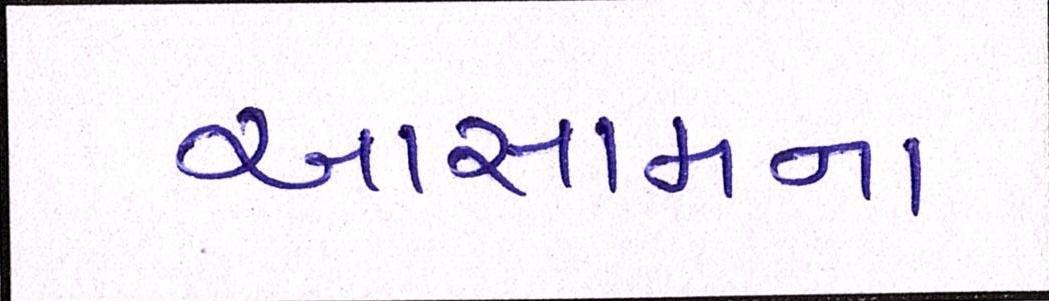 આસામના